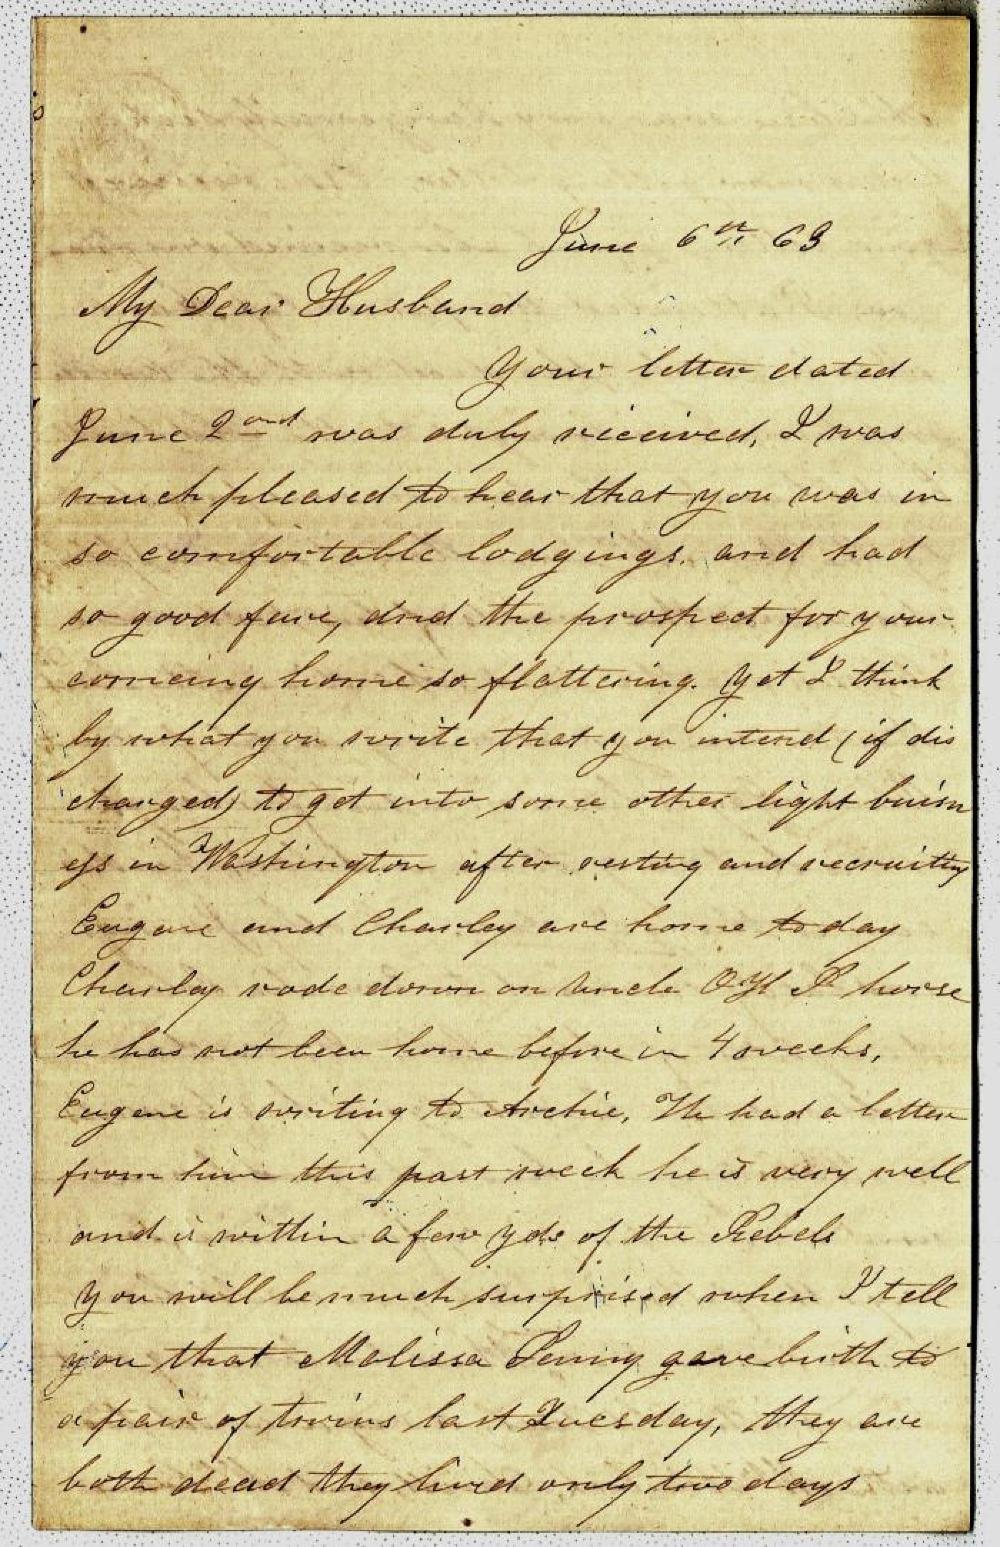 June 6th 63
My Dear Husband
Your letter dated
June 2ond was duly received, I was
much pleased to hear that you was in
so comfortable lodgings. and had
so good fare, and the prospect for your
comeing home so flattering. Yet I think
by what you write that you intend (if dis
charged) to get into some other light buisn
ess in Washington after resting and recruiting
Eugene and Charley are home today
Charley rode down on Uncle O H P horse
he has not been home before in 4 weeks,
Eugene is writing to Archie, He had a letter
from him this past week he is very well
and is within a few yds of the Rebels
You will be much surprised when I tell
you that Malissa Penny gave birth to
a pair of twins last Tuesday, they are
both dead they lived only two days